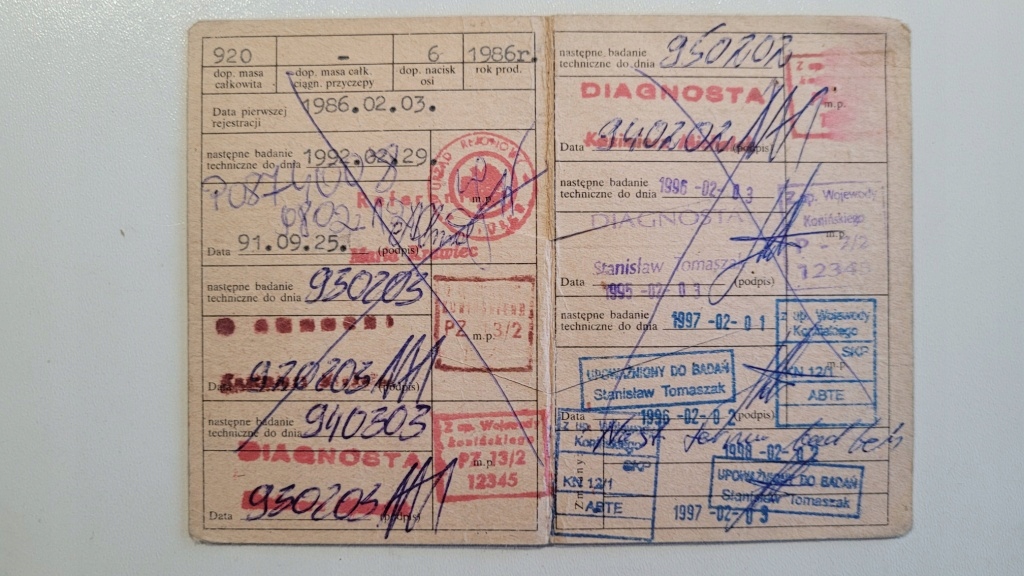 920 - 6 1986r.
dop. masa całkowita
dop. masa całk. ciągn. przyczepy
dop. nacisk osi
rok prod.
Data pierwszej rejestracji 1986.02.03.
następne badanie techniczne do dnia 1992.02.29.
URZĄD REJONOWY
m.p.
Data 91.09.25. (podpis)
następne badanie techniczne do dnia 930203
PZ 3/2
m.p.
Data 920203
następne badanie techniczne do dnia 940303
DIAGNOSTA
Z up. Wojewody
konińskiego
PZ 13/2
12345
m.p.
Data 930203 (podpis)
następne badanie techniczne do dnia 950202
DIAGNOSTA
m.p.
Data 940202 (podpis)
następne badanie techniczne do dnia 1996-02-03
DIAGNOSTA
Z up. Wojewody
Konińskiego
12345
m.p.
Stanisław Tomaszak
Data 1995-02-03 (podpis)
następne badanie techniczne do dnia 1997-02-01
Z up. Wojewody
Konińskiego
SKP
KN 12/1
ABTE
UPOWAŻNIONY DO BADAŃ
Stanisław Tomaszak
Data 1996-02-02 (podpis)
Z up. Wojewody
Konińskiego
SKP
KN 12/1
ABTE
Nast. termin badań
1998-02-02
UPOWAŻNIONY DO BADAŃ
Stanisław Tomaszak
1997-02-03